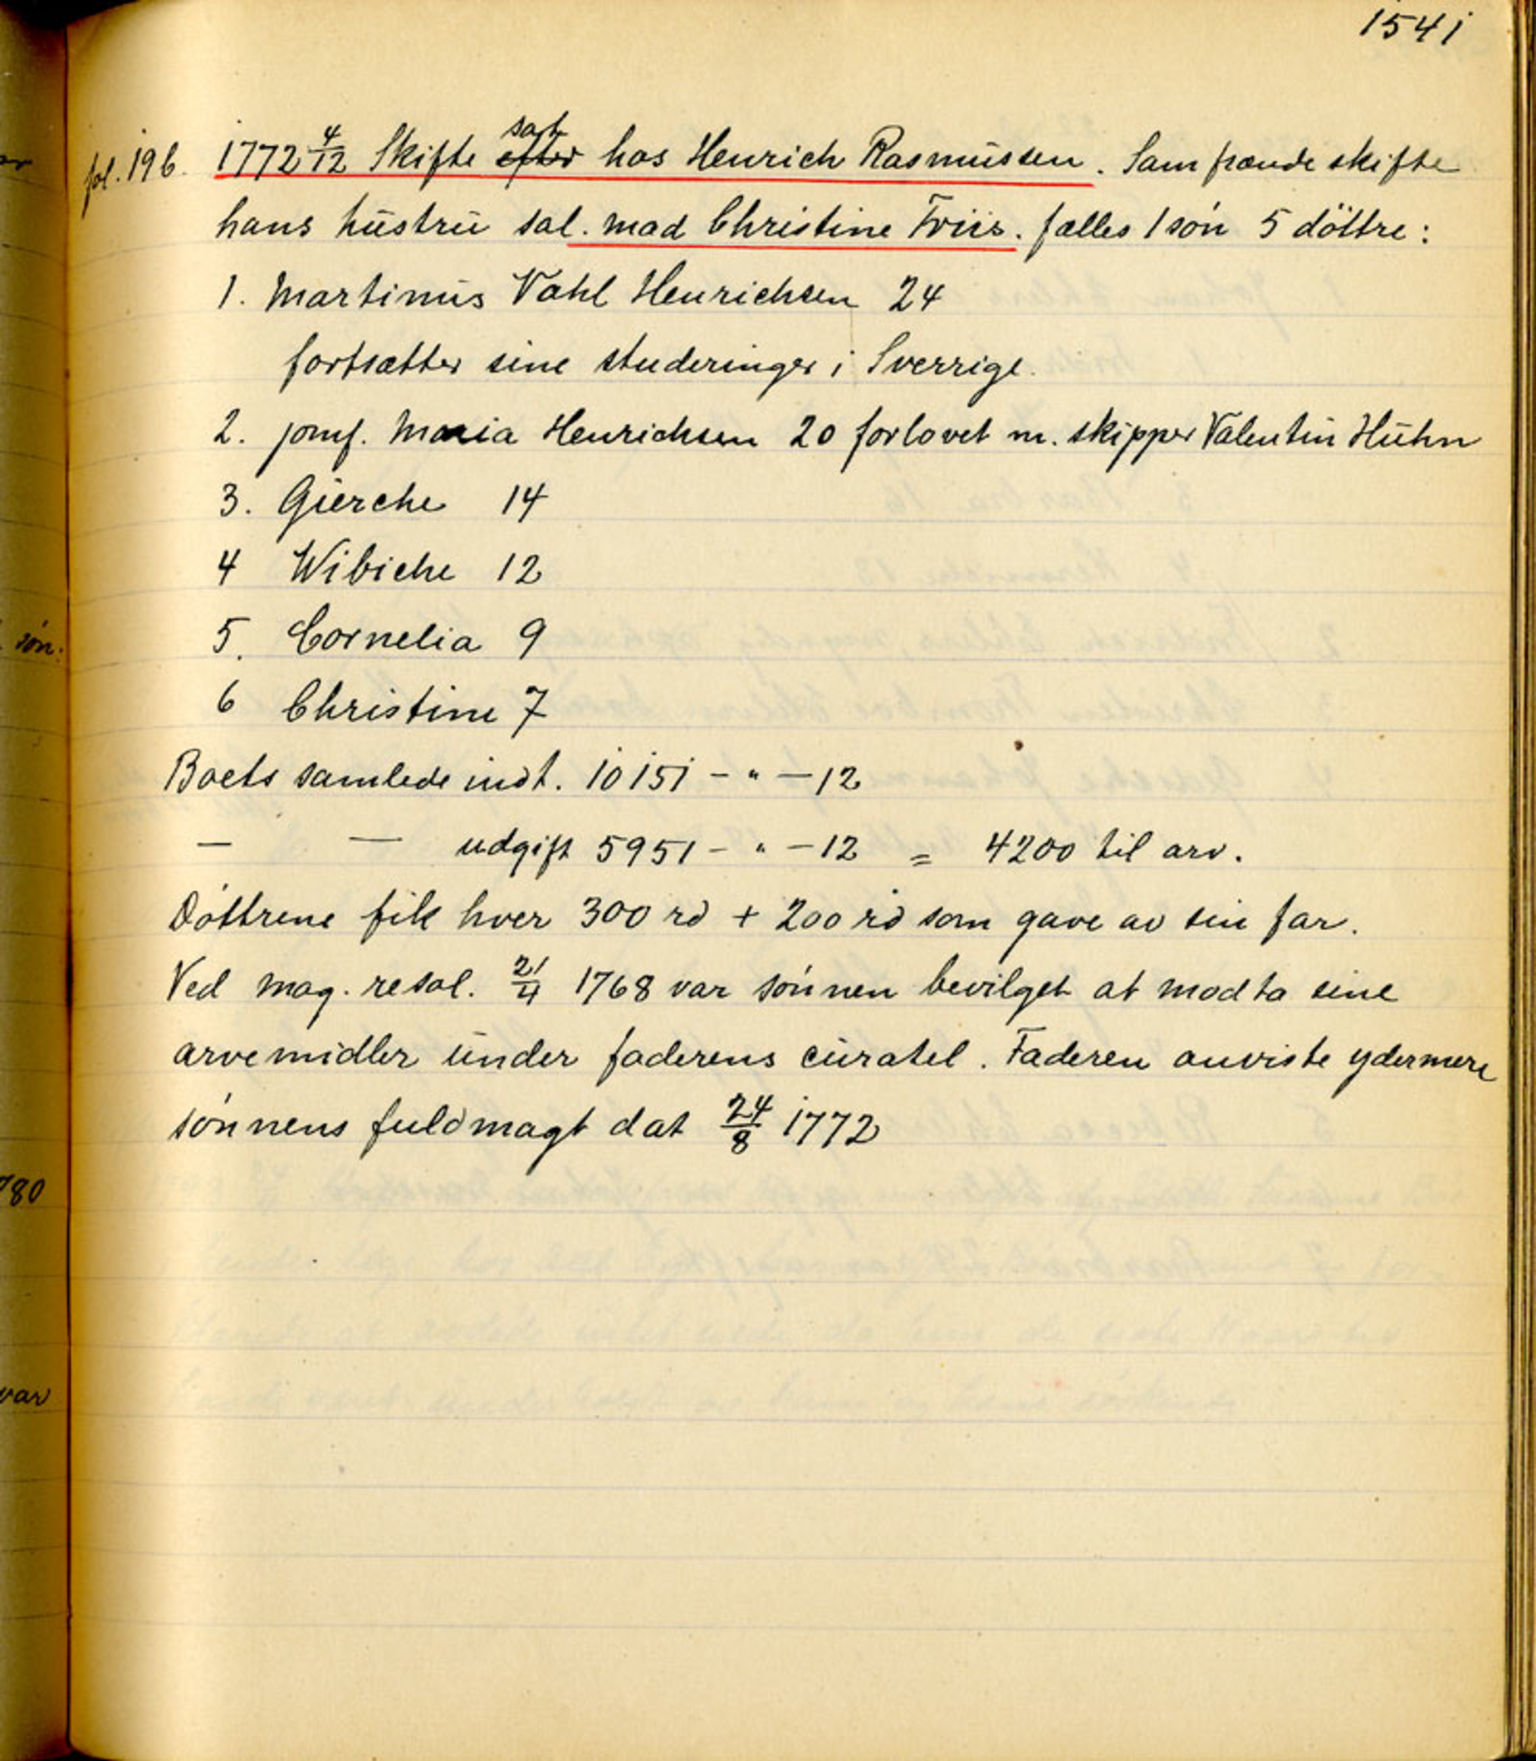 1541
fol. 196. 1772 4/12 Skifte efter sat hos Henrich Rasmussen. Samfrænde skifte
hans hustru sal. mad Christine Friis. fælles 1 søn 5 döttre:
1. Martinus Vahl Henrichsen 24
fortsætter sine studeringer i Sverrige.
2. jomf. Maria Henrichsen 20 forlovet m. skipper Valentin Huhn
3. Gierche 14
4 Wibiche 12
5. Cornelia 9
6 Christine 7
Boets samlede indt. 10151 - " - 12
— — udgift 5951 - " - 12 = 4200 til arv.
Döttrene fik hver 300 rd + 200 rd som gave av sin far.
Ved mag. resol. 21/4 1768 var sönnen bevilget at modta sine
arvemidler under faderens curatel. Faderen anviste ydermere
sönnens fuldmagt dat 24/8 1772
søn.
780
var